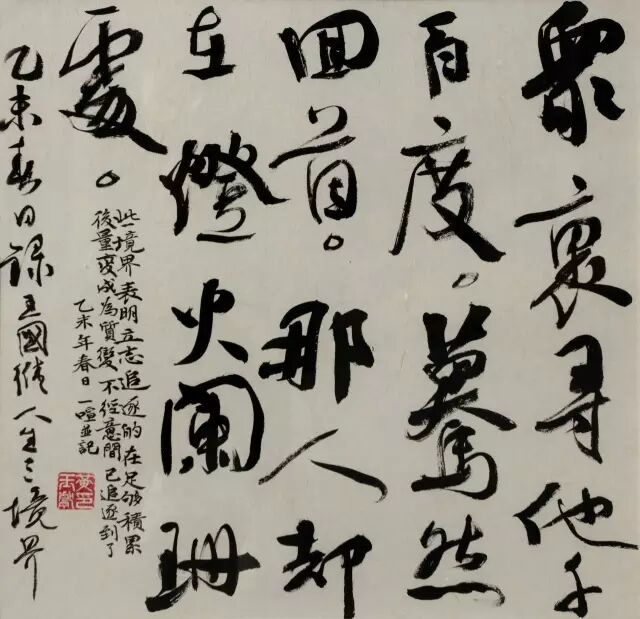 眾裏尋他千
百度。驀然
回首。那人却
在燈火闌珊
處。
此境界表明立志追逐的在足够積累
後量變成為質變不經意間已追逐到了
乙未年春日一喧並記
乙未春日錄王國維人生三境界